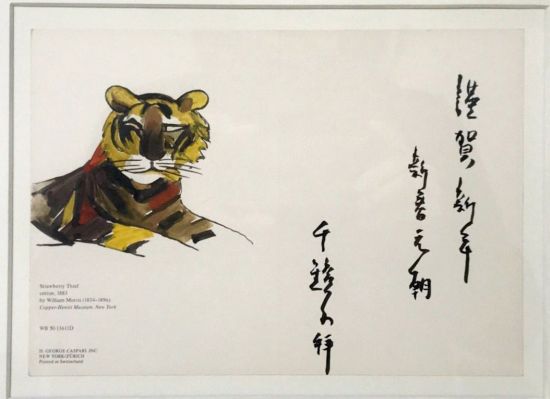 謹賀新年
新春元朝
千鏡子拜
Strawberry Thief
cotton, 1883
by William Morris (1834–1896)
Cooper-Hewitt Museum, New York
WB 50
H. GEORGE CASPARI, INC
NEW YORK/ZÜRICH
Printed in Switzerland